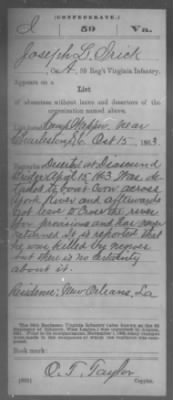 (CONFEDERATE.)
59 Va.
Joseph L. Irick
, Co. , 59 Reg't Virginia Infantry.
Appears on a
List
of absentees without leave and deserters of the
organization named above.
List dated Camp near
Charleston, S.C. Oct 15, 1863.
Remarks: Deserted at Diascund
Bridge April 15 1863 Was de-
tailed to boat Corn across
York River and afterwards
got leave to Cross the river
for provisions and has never
returned it is reported that
he was killed by negroes
but there is no certainty
about it.
Residence: New Orleans, La
Book mark:
O. T. Taylor
Copyist.